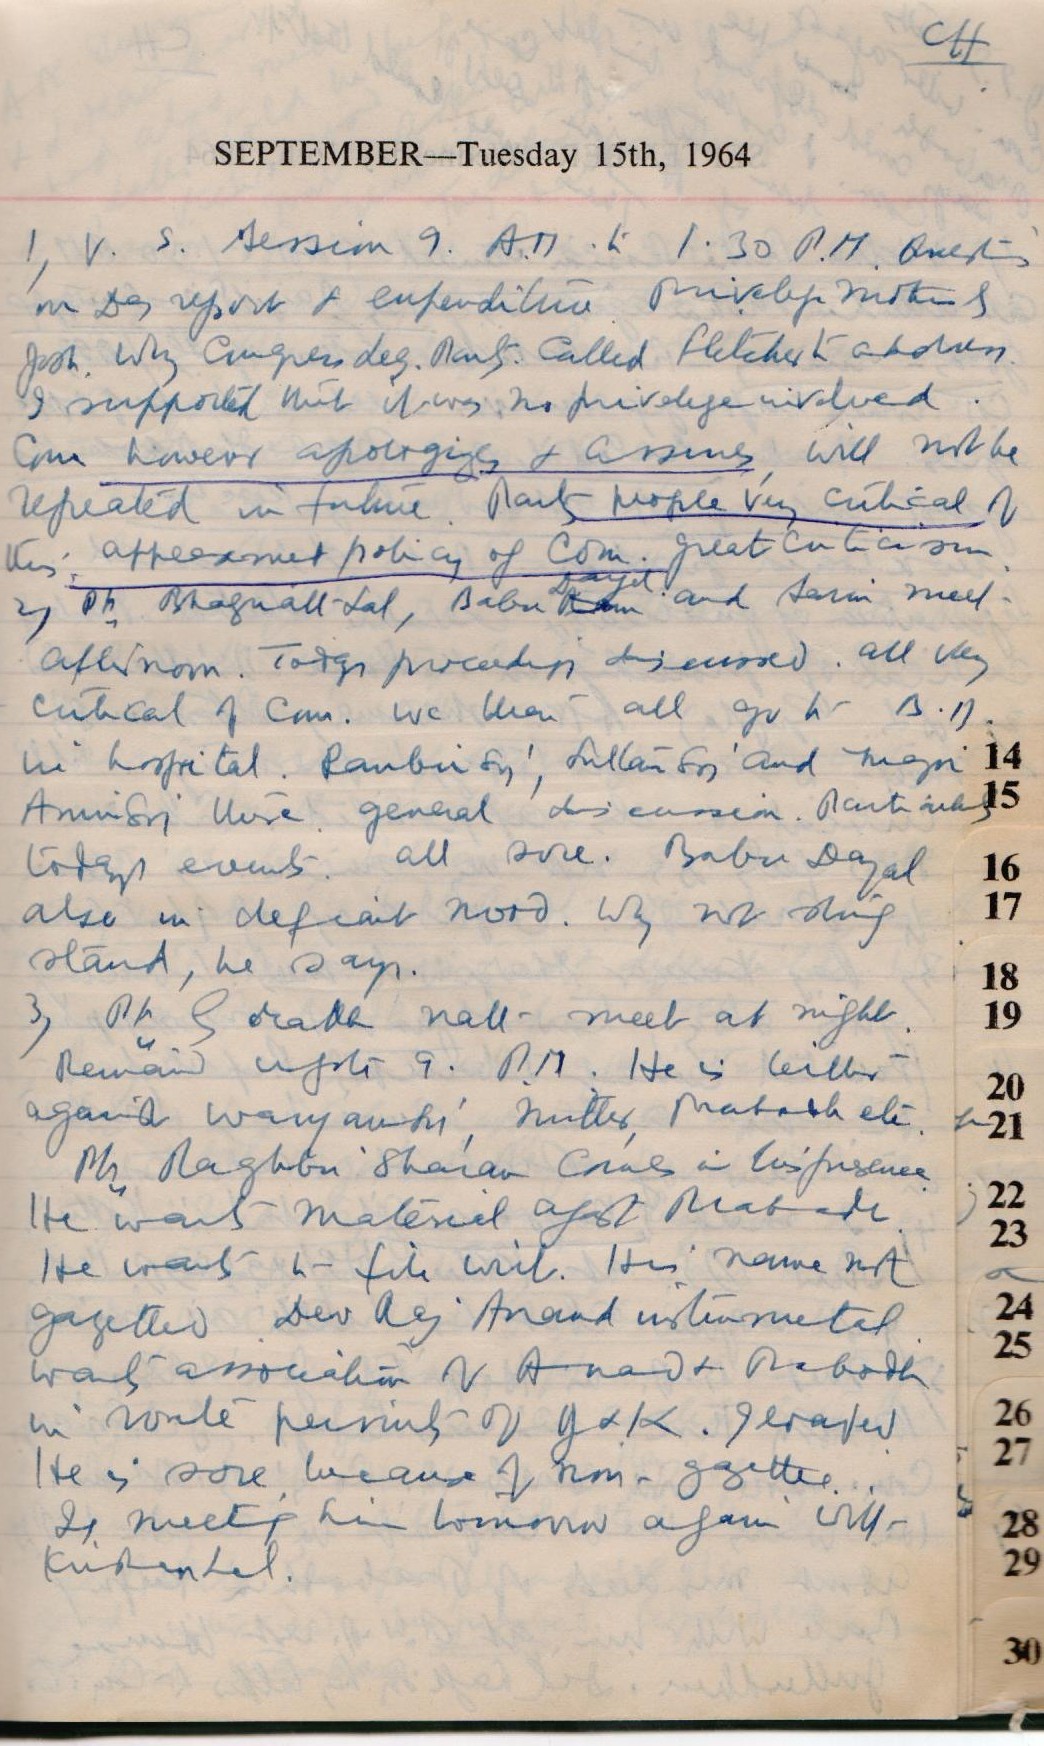 CH
SEPTEMBER—Tuesday 15th, 1964
1, V. S. Session 9. A.M. to 1.30 P.M. Questions
on Das report & expenditure Privelege motion by
Josh. Why Congress leg. Party. Called Fletcher to address.
I supported that it was no privelege involved.
Com however apologizes & assures, will not be
repeated in future. Party people very critical of
this appeasement policy of Com. great criticism
2, Pt. Bhagwatt-Lal, Babu Dayal and Sarin meet
afternoon. Todys proceedings discussed. all very
critical of Com. we then all go to B.D.
in hospital. Ranbir Sg, Sultan Sg and Major
Amir Sg there. general discussion. Particularly
todays events. all sore. Babu Dayal
also in defiant mood. Why not strong
stand, he says.
3, Pt. meet at night.
Remain upto 9. P.M. He is bitter
against Waryam Sg, Mitter, Prabodh etc.
Pt. Raghbir Sharan Comes in his presence
He wants material agst Prabodh.
He wants to file writ. His name not
gazetted Dev Raj Anand instrumetal
wants association of Anand & Prabodh
in route permits of J&K.
He is sore because of non-gazettee.
Is meeting him tomorrow again with
Krishan Lal.
14
15
16
17
18
19
20
21
22
23
24
25
26
27
28
29
30